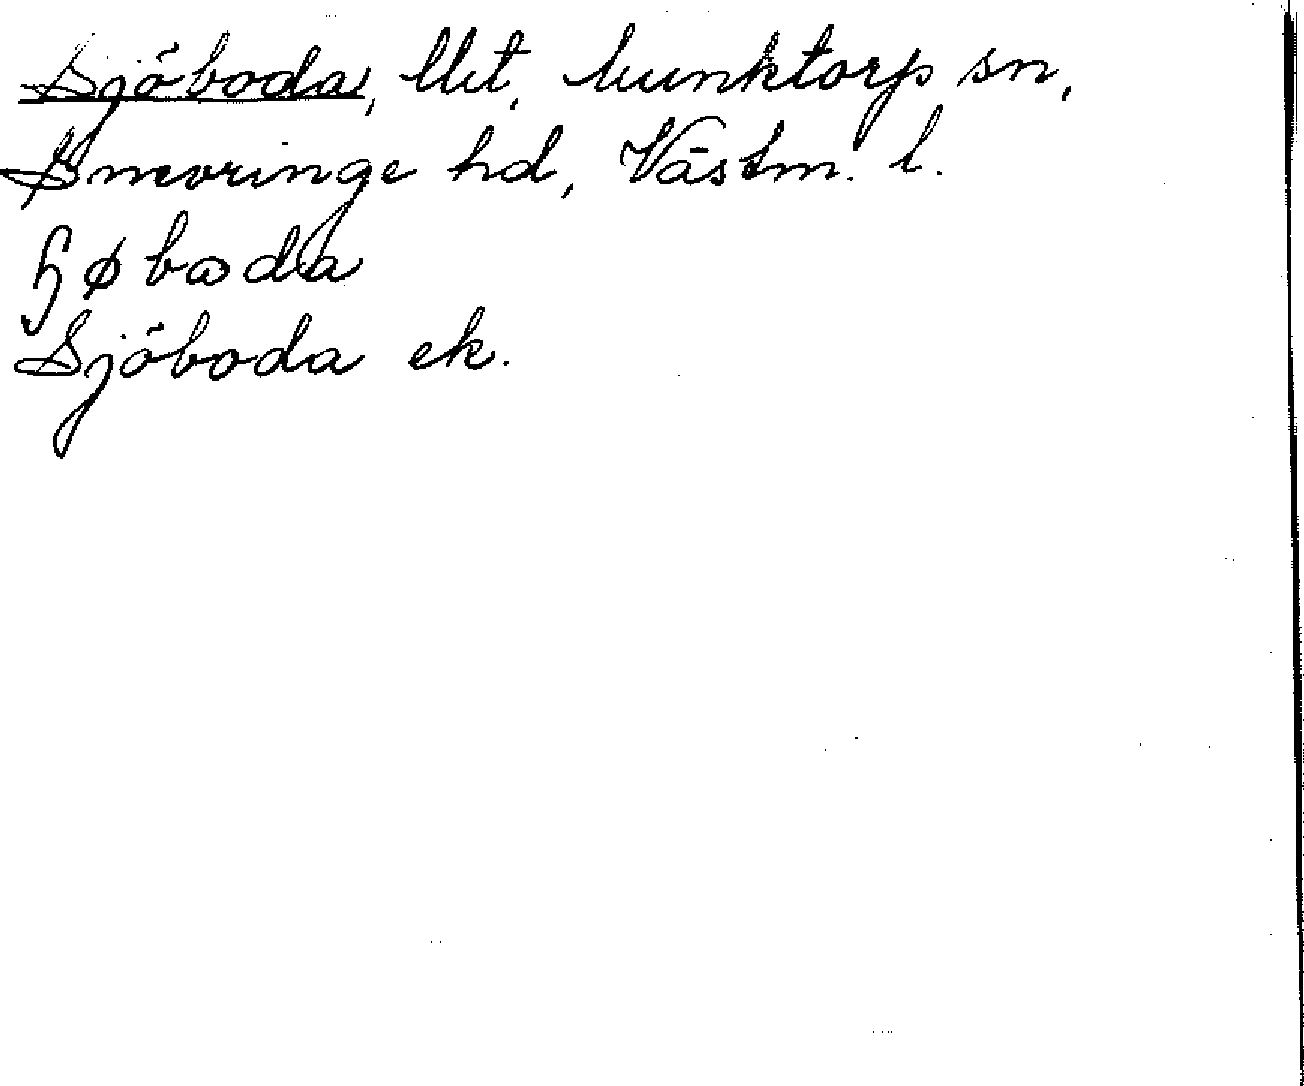 Sjöboda, Munktorp sn,
Snevringe hd, Västm. l.
ɧøbωda
Sjöboda ek.